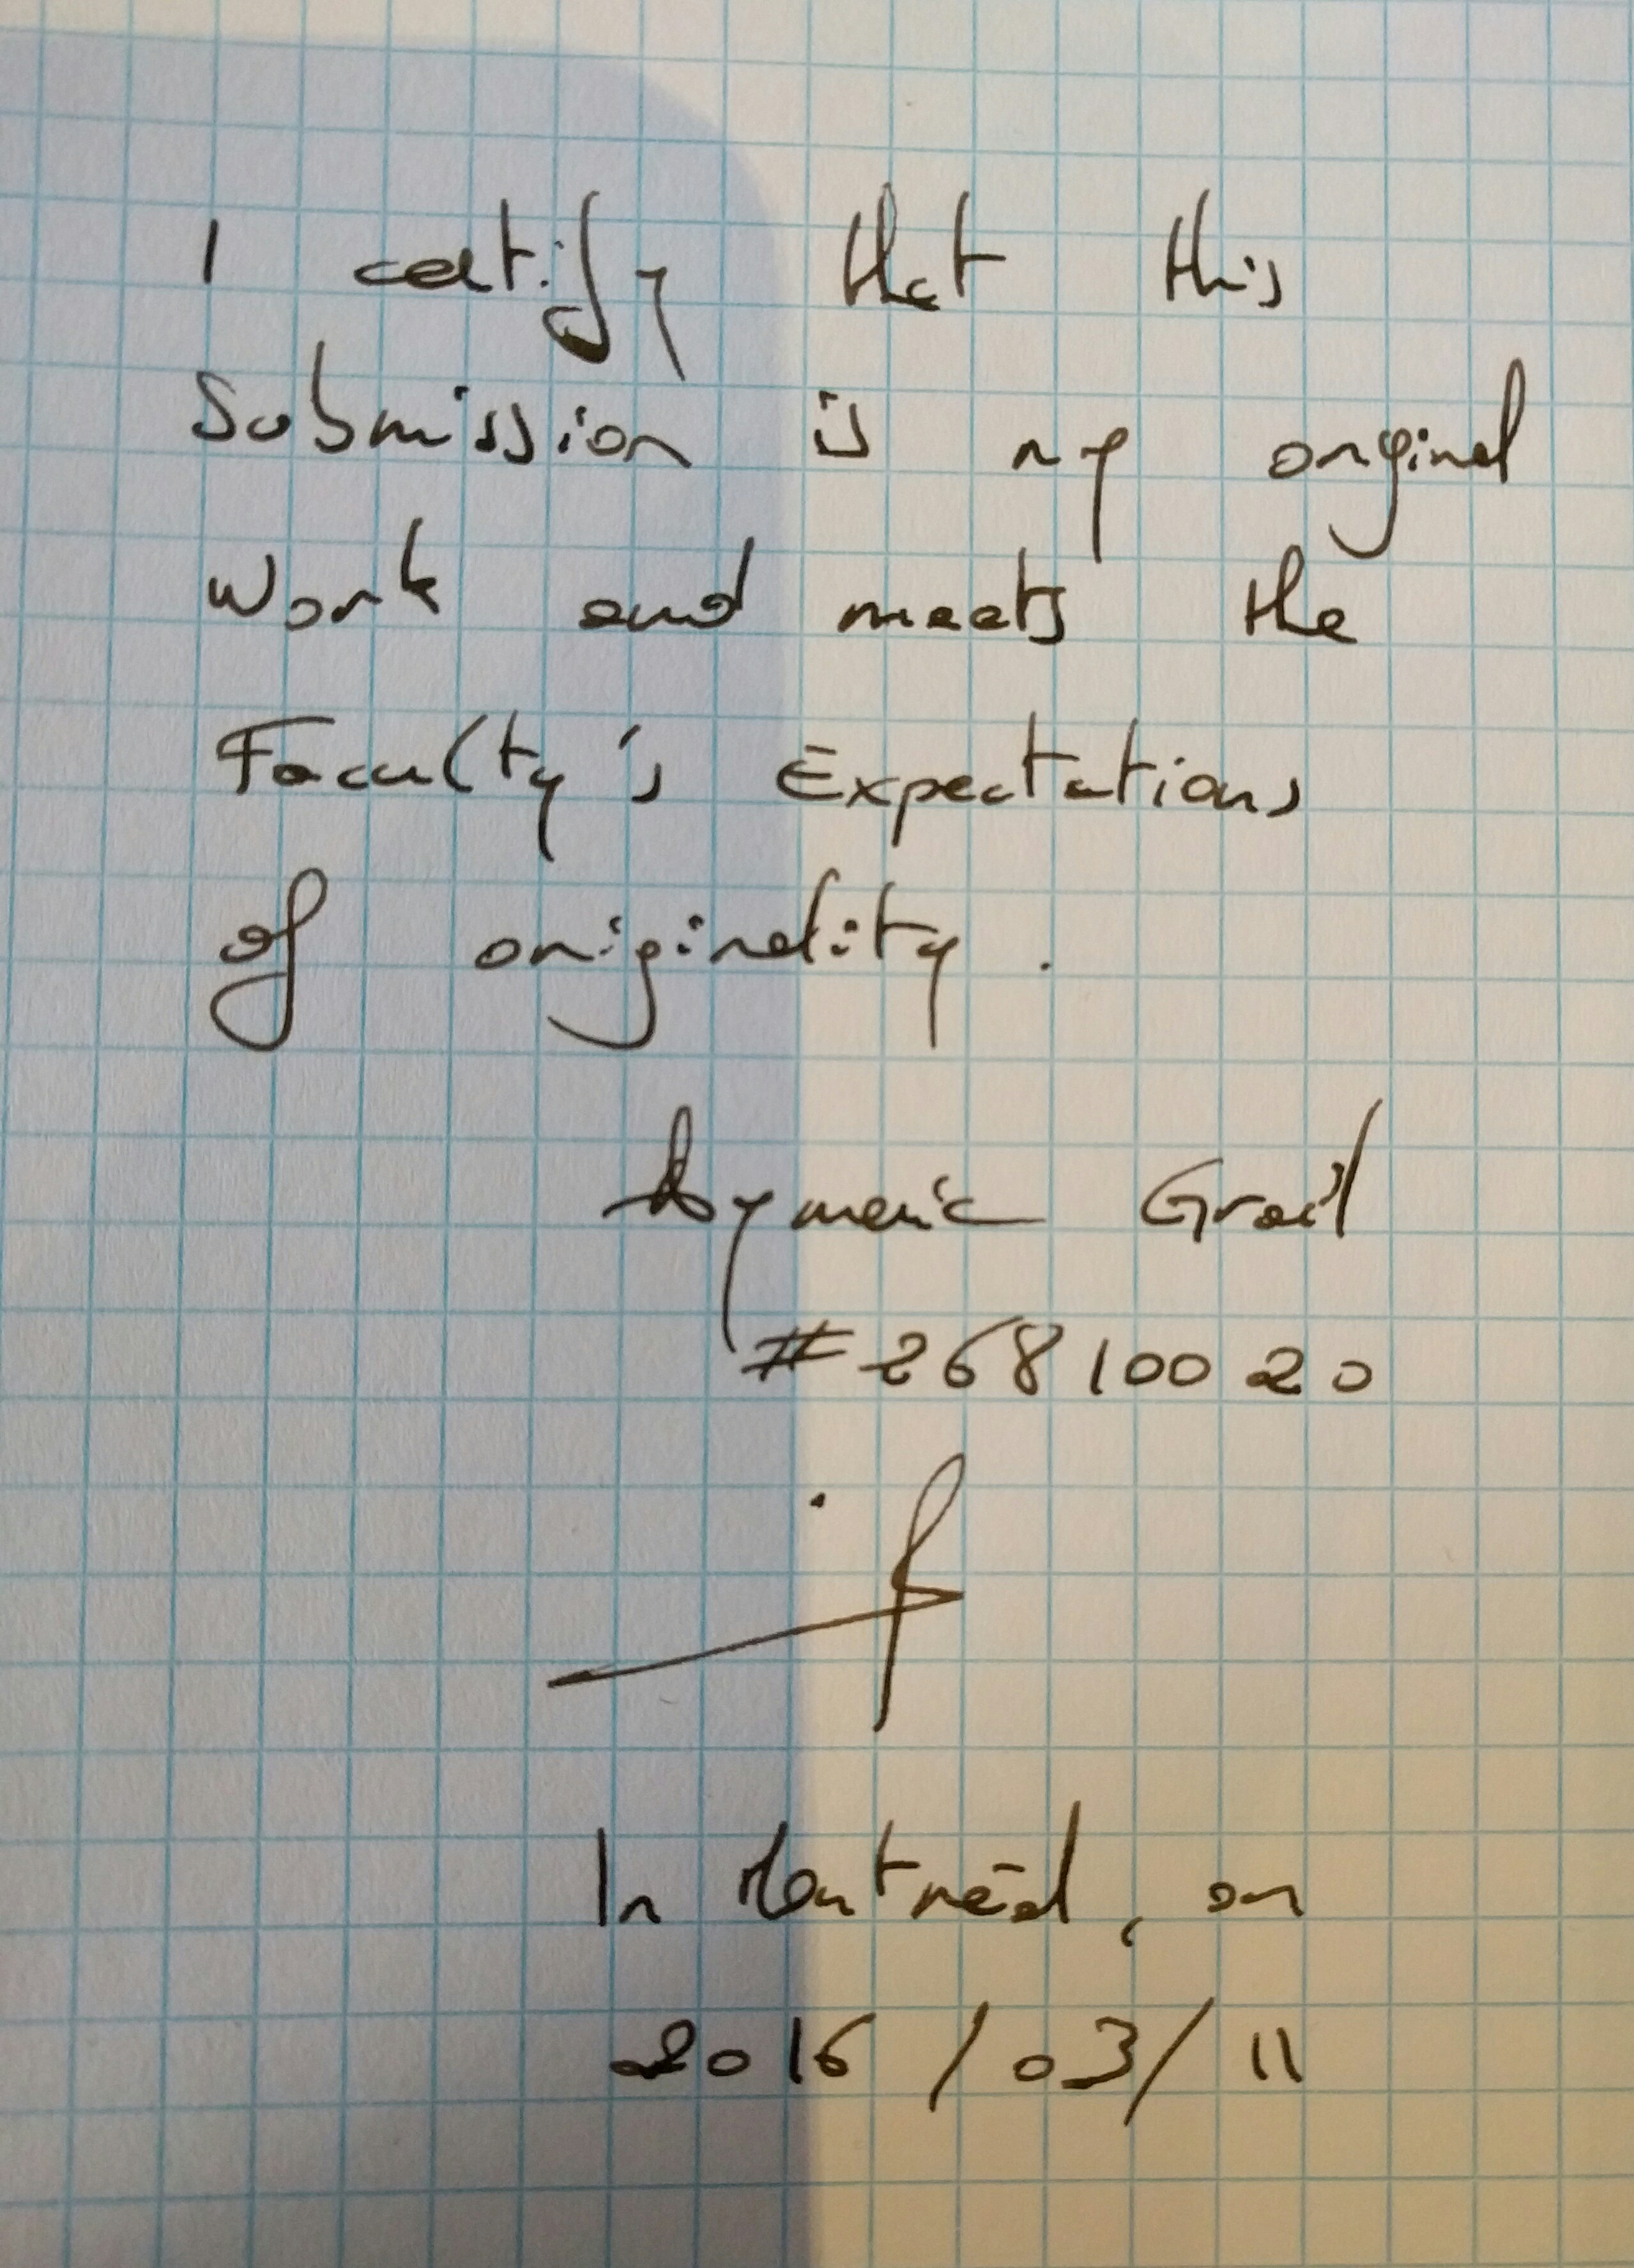 I certify that this
Submission is my original
Work and meets the
Faculty's Expectations
of originality.
Aymeric Grail
#26810020
In Montréal, on
2016/03/11